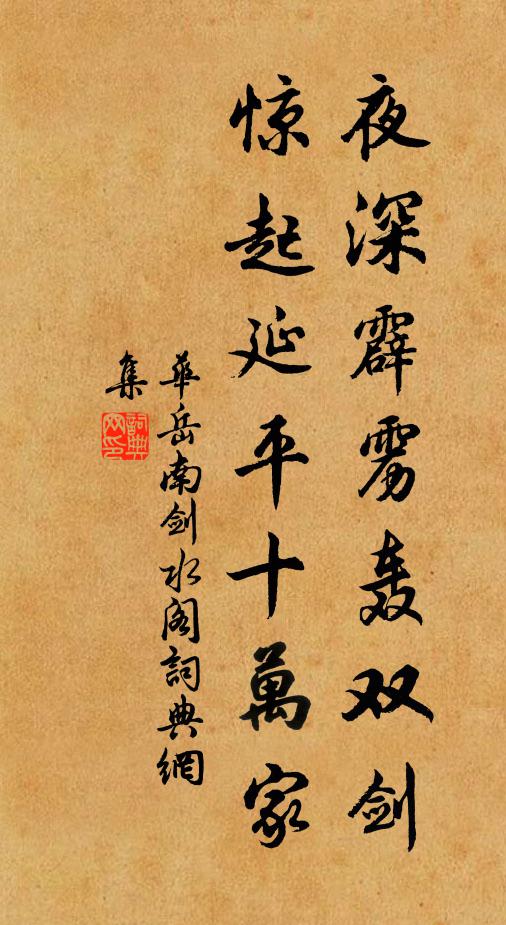 夜深霹雳轰双剑
惊起延平十萬家
華岳南剑水阁詞典網
集
詞典网印